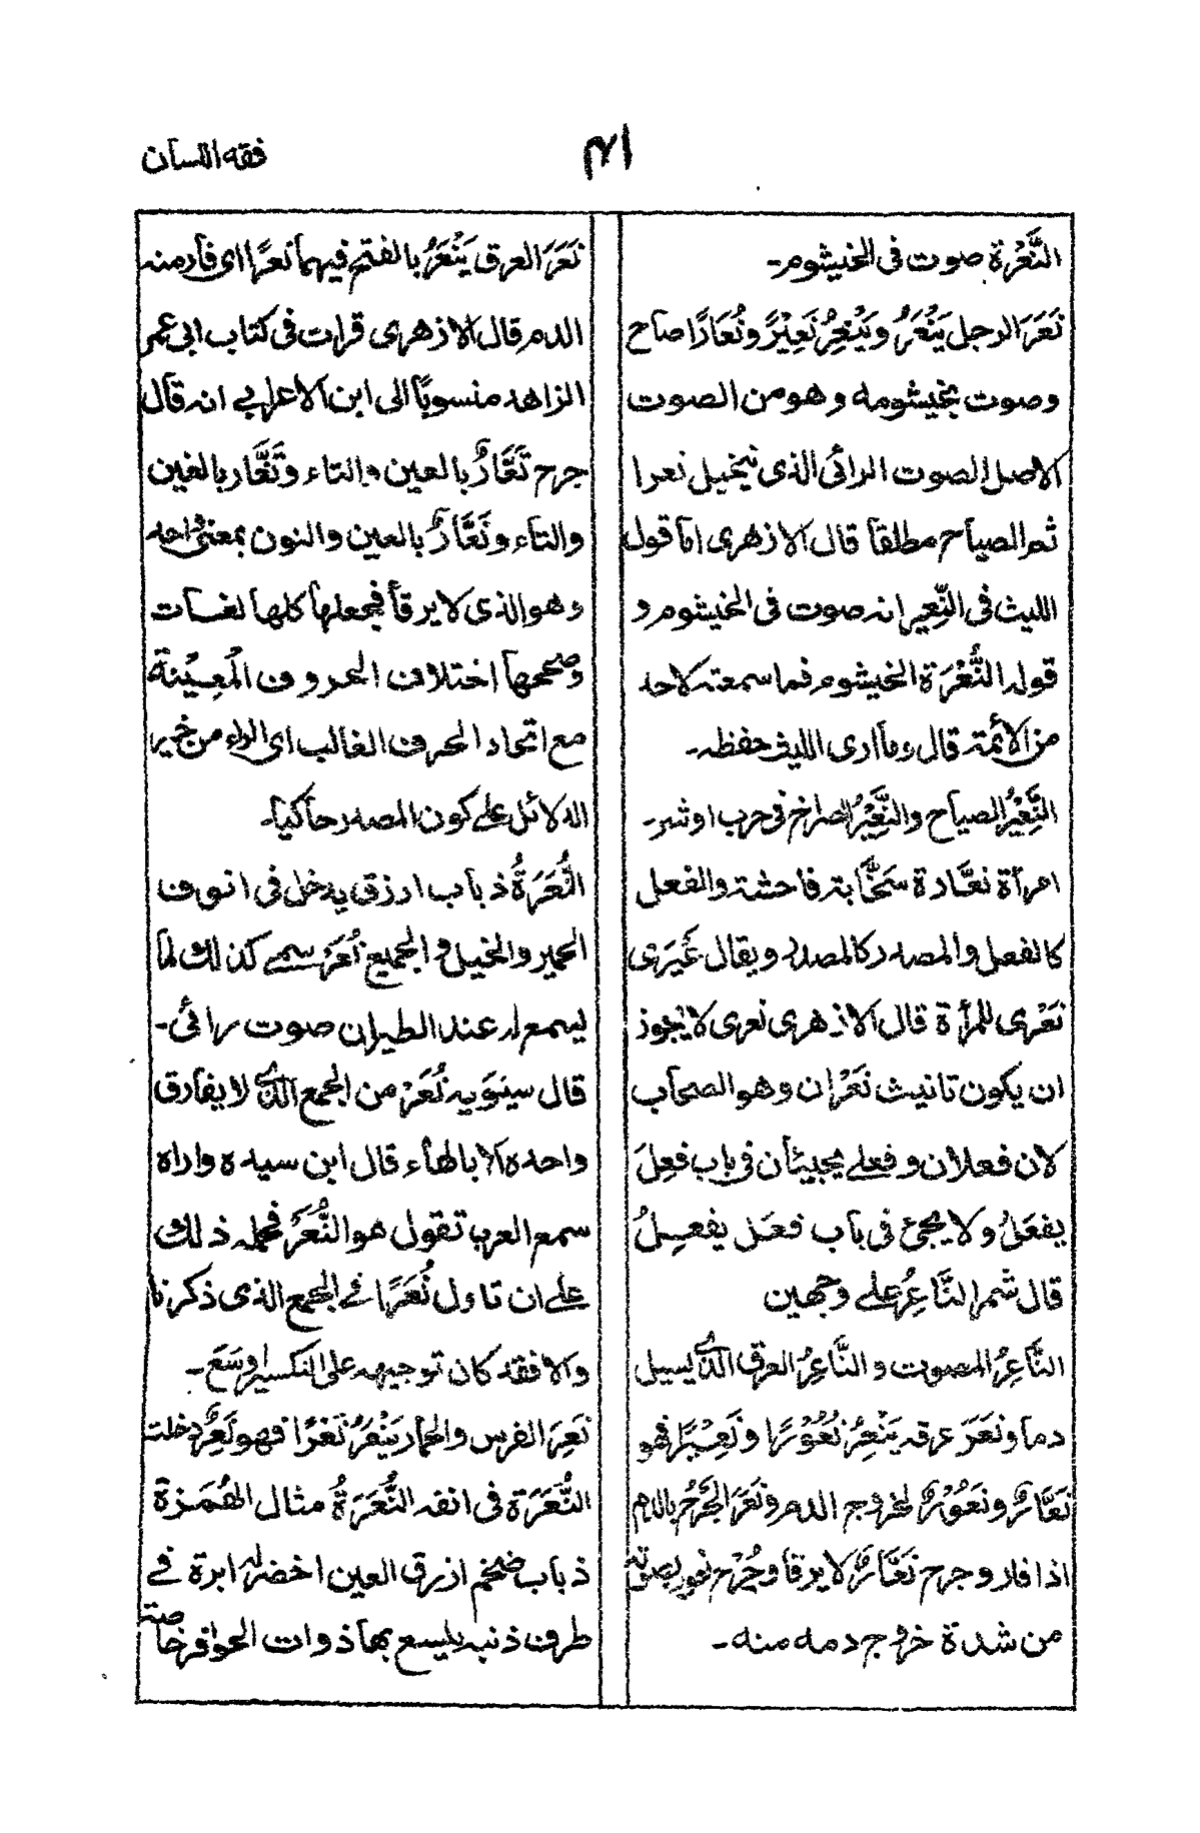 فقه اللسان
النَّعْرَة صوت فى الخيشوم۔
نَعَرَ الرجل يَنْعَرُ ويَنْعِرُ نَعِيْرًا ونُعَارًا صاح
وصوت بخيشومه وهو من الصوت
الاصل الصوت الرائى الذى يتخيل نعرا
ثم الصياح مطلقا قال الازهرى اما قول
الليث فى النَّعِير انه صوت فى الخيشوم و
قوله النُّعْرَة الخيشوم فما سمعته لاحد
من الأئمة قال وما ارى الليث حفظه۔
النَّعِيْرُ الصياح والنَّعِيْرُ الصراخ فى حرب او شر۔
امرأة نعّارة سخّابة فاحشة والفعل
كالفعل والمصدر كالمصدر ويقال غَيْرَى
نَعْرى للمرأة قال الازهرى نعرى لا يجوز
ان يكون تانيث نَعْران وهو الصخاب
لان فعلان وفعلى يجيئان فى باب فعِلَ
يفعَلُ ولا يجئ فى باب فعَل يفعِلُ
قال شمر النَّاعِرُ على وجهين
النَّاعِرُ المصوت والنَّاعِرُ العرق الذى يسيل
دما ونَعَرَ عرقه يَنْعِرُ نُعُوْرًا ونَعِيْرًا فهو
نَعَّارٌ ونَعُوْرٌ لخروج الدم ونَعَرَ الجُرْحُ بالدم
اذا فار وجرح نَعَّارٌ لا يرقأ وجُرْح نعور يصوت
من شدة خروج دمه منه۔
نَعَرَ العرق يَنْعَرُ بالفتح فيهما نعرًا اى فار منه
الدم قال الازهرى قرات فى كتاب ابى عمر
الزاهد منسوبًا الى ابن الاعرابى انه قال
جرح تَعَّارٌ بالعين والتاء وتَغَّار بالغين
والتاء ونَعَّارٌ بالعين والنون بمعنى واحد
وهو الذى لا يرقأ فجعلها كلها لغات
وصححها اختلاف الحروف المُعِيْنة
مع اتحاد الحرف الغالب اى الراء من خير
الدلائل على كون المصدر حاكيا۔
النُّعَرَةُ ذباب ازرق يدخل فى انوف
الحمير والخيل والجميع نُعَرٌ سمى كذلك لما
يسمع له عند الطيران صوت رائى۔
قال سيبَوَيه نُعَرٌ من الجمع الذى لا يفارق
واحده الا بالهاء قال ابن سيده واراه
سمع العرب تقول هو النُّعَرُ فحمله ذلك
على ان تاول نُعَرًا فى الجمع الذى ذكرنا
والا فقد كان توجيهه على التكسير اوسَعَ۔
نَعِرَ الفرس والحمار يَنْعَرُ نَعَرًا فهو نَعِرٌ دخلت
النُّعَرَة فى انفه النُّعَرَةُ مثال الهُمَزة
ذباب ضخم ازرق العين اخضر له ابرة فى
طرف ذنبه يلسع بها ذوات الحوافر خاصة